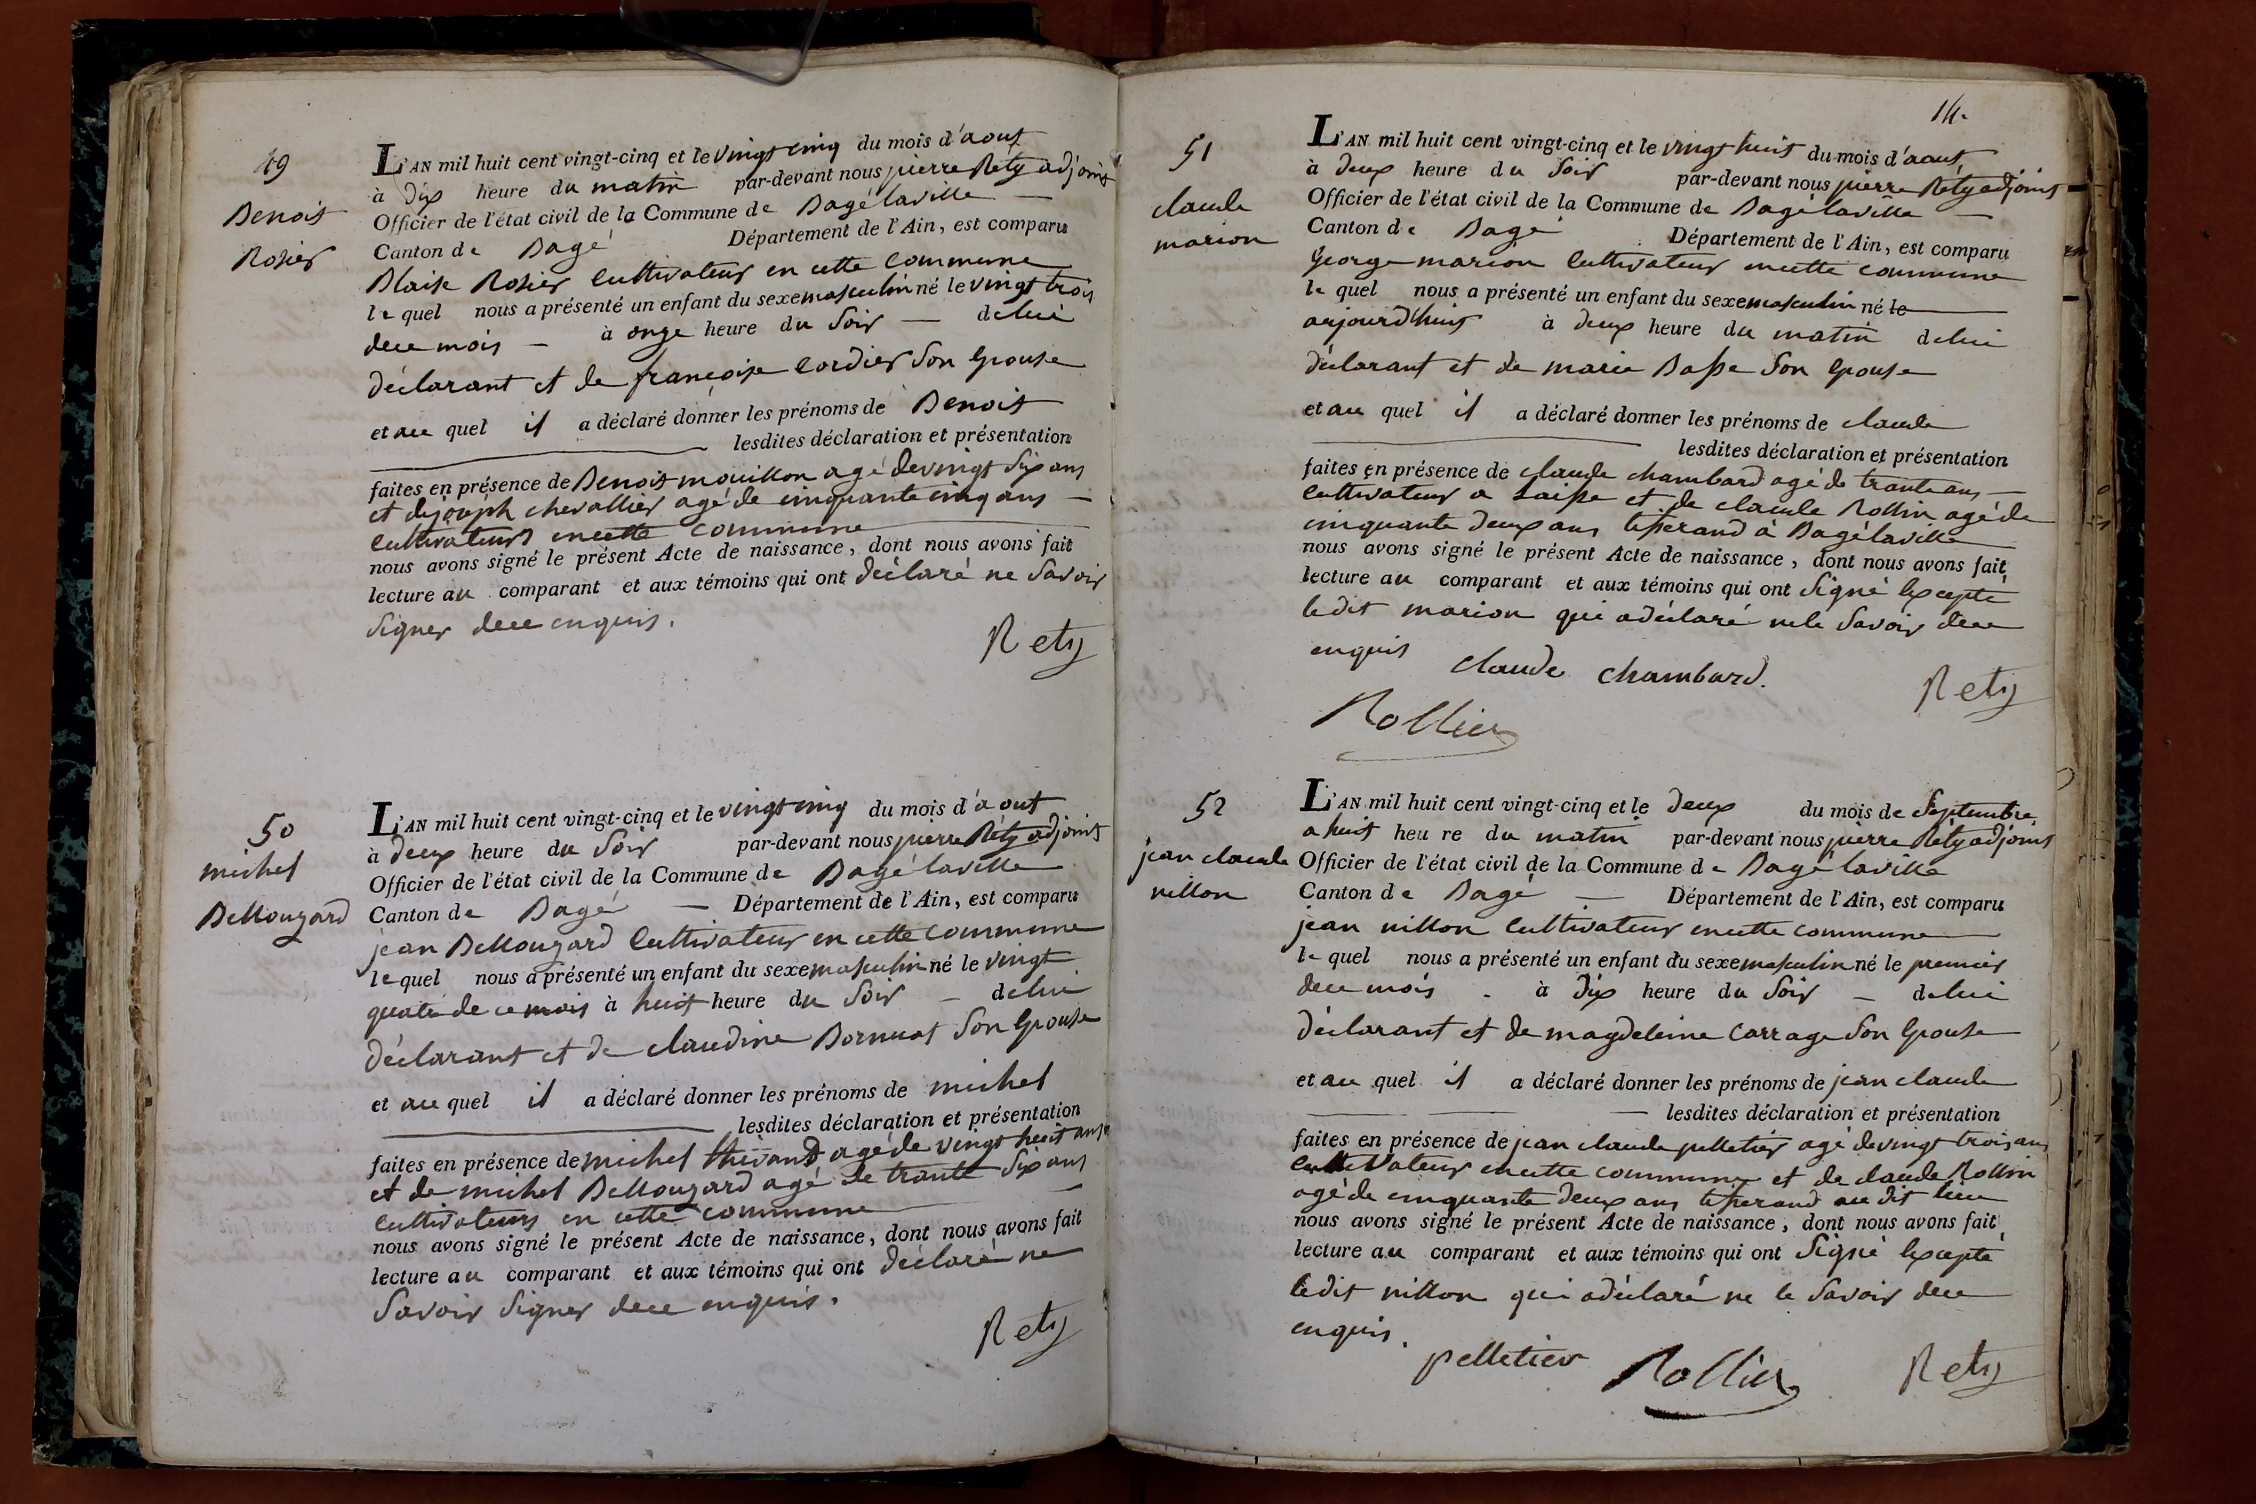 49
Benoit
Rosier
L'AN mil huit cent vingt-cinq et le vingt cinq du mois d'aout
à dix heure du matin par-devant nous pierre Rety adjoint
Officier de l'état civil de la Commune de Bagé laville —
Canton de Bagé Département de l'Ain, est comparu
Blaise Rosier Cultivateur en cette commune
le quel nous a présenté un enfant du sexe masculin né le vingt trois
de ce mois — à onze heure du Soir — de lui
déclarant et de françoise Cordier Son Epouse
et au quel il a déclaré donner les prénoms de Benoit
lesdites déclaration et présentation
faites en présence de Benoit mouillon agé de vingt Six ans
et de joseph chevallier agé de cinquante cinq ans —
Cultivateurs en cette commune
nous avons signé le présent Acte de naissance, dont nous avons fait
lecture au comparant et aux témoins qui ont déclaré ne Savoir
Signer de ce enquis.
Rety
50
michel
Bellouzard
L'AN mil huit cent vingt-cinq et le vingt cinq du mois d'aout
à deux heure du Soir par-devant nous pierre Réty adjoint
Officier de l'état civil de la Commune de Bagé laville
Canton de Bagé — Département de l'Ain, est comparu
jean Bellouzard Cultivateur en cette commune
le quel nous a présenté un enfant du sexe masculin né le vingt
quatre de ce mois à huit heure du Soir — de lui
déclarant et de claudine Bornuat Son Epouse
et au quel il a déclaré donner les prénoms de michel
lesdites déclaration et présentation
faites en présence de michel agé de vingt huit ans
et de michel Bellouzard agé de trante Six ans
Cultivateurs en cette commune
nous avons signé le présent Acte de naissance, dont nous avons fait
lecture au comparant et aux témoins qui ont déclaré ne
Savoir Signer de ce enquis.
Rety
14.
51
claude
marion
L'AN mil huit cent vingt-cinq et le vingt huit du mois d'aout
à deux heure du Soir par-devant nous pierre Réty adjoint
Officier de l'état civil de la Commune de Bagé laville —
Canton de Bagé Département de l'Ain, est comparu
George marion Cultivateur en cette commune
le quel nous a présenté un enfant du sexe masculin né le
aujourd'huit à deux heure du matin de lui
déclarant et de marie Basse Son Epouse
et au quel il a déclaré donner les prénoms de claude
lesdites déclaration et présentation
faites en présence de claude chambard agé de trante ans —
Cultivateur a et de claude Rollin agé de
cinquante deux ans tisserand à Bagé laville
nous avons signé le présent Acte de naissance, dont nous avons fait
lecture au comparant et aux témoins qui ont Signé Excepté
ledit marion qui a déclaré ne le Savoir de ce
enquis
claude chambard.
Rety
Rollin
52
jean claude
nillon
L'AN mil huit cent vingt-cinq et le deux du mois de Septembre
a huit heu re du matin par-devant nous pierre Réty adjoint
Officier de l'état civil de la Commune de Bagé laville
Canton de Bagé — Département de l'Ain, est comparu
jean nillon Cultivateur en cette commune
le quel nous a présenté un enfant du sexe masculin né le premier
de ce mois - à dix heure du Soir — de lui
déclarant et de magdeleine Carrage Son Epouse
et au quel il a déclaré donner les prénoms de jean claude
— lesdites déclaration et présentation
faites en présence de jean claude pelletier agé de vingt trois ans
Cultivateur en cette commune et de claude Rollin
agé de cinquante deux ans tisserand au dit lieu
nous avons signé le présent Acte de naissance, dont nous avons fait
lecture au comparant et aux témoins qui ont Signé Excepté
ledit nillon qui a déclaré ne le Savoir de ce
enquis.
pelletier
Rollin
Rety